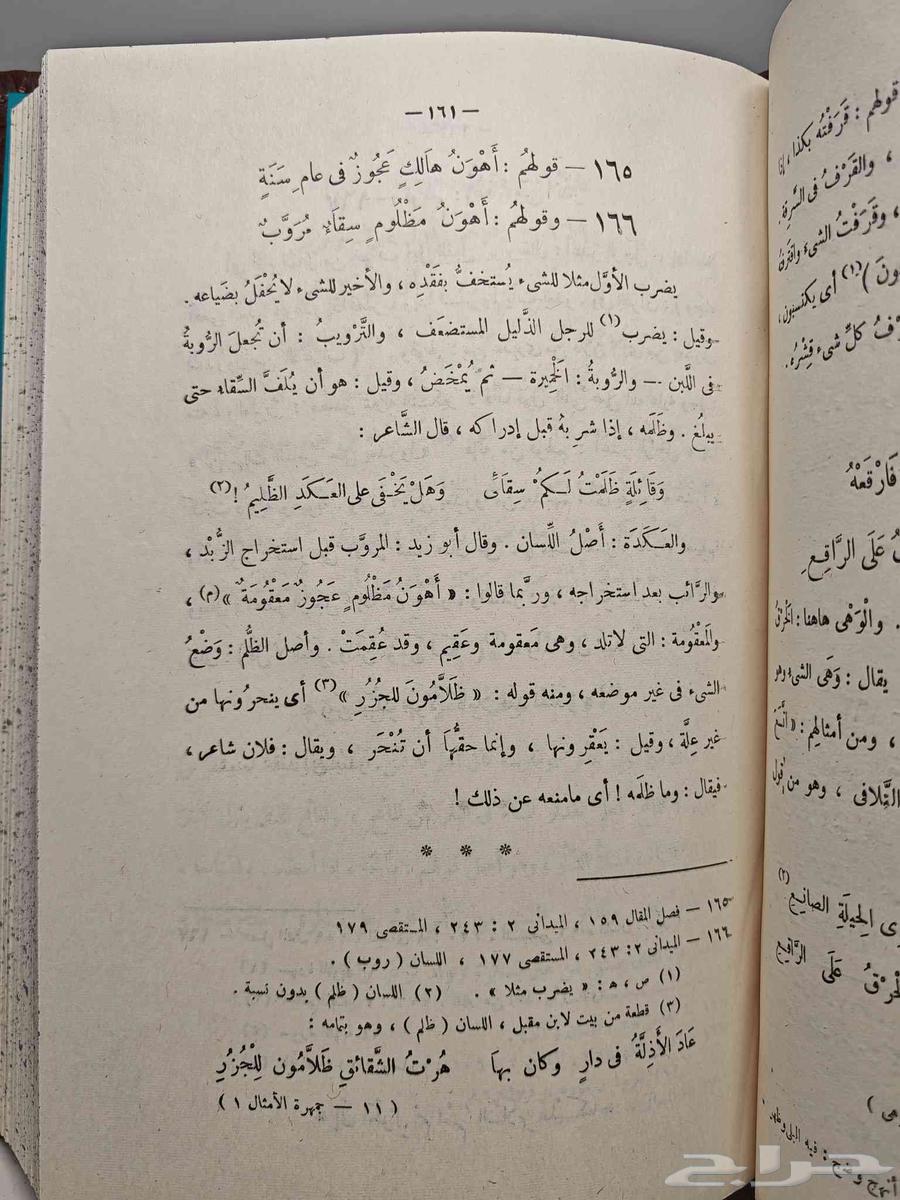 — ١٦١ —
١٦٥ — قولهُم : أَهْوَنُ هَالِكٍ عَجُوزٌ فى عام سَنَةٍ
١٦٦ — وقولهُم : أَهْوَنُ مَظْلُومٍ سِقَاءٌ مُرَوَّبٌ
يضرب الأوَّل مثلا للشىء يُستخفُّ بفَقْدِه ، والأخير للشىء لا يُحْفَلُ بضَياعه .
وقيل : يضرب (١) للرجل الذَّليل المستضعَف ، والتَّرْويبُ : أن تُجعلَ الرُّوبةُ
فى اللَّبن — والرُّوبةُ : الخَمِيرة — ثم يُمْخَضُ ، وقيل : هو أن يُلَفَّ السِّقاء حتى
يبلُغ . وظَلَمه ، إذا شرِبهُ قبل إدراكه ، قال الشَّاعر :
وَقَائِلَةٍ ظَلَمْتُ لَكمُ سِقَائى    وَهَلْ يَخْفَى على العَكَدِ الظَّلِيمُ ! (٢)
والعَكَدَة : أَصْلُ اللِّسان . وقال أبو زيد : المروَّب قبل استخراج الزُّبْد ،
والرَّائب بعد استخراجه ، وربَّما قالوا : « أَهْوَنُ مَظْلُومٍ عَجُوزٌ مَعْقُومَةٌ » (م) ،
والمَعْقُومة : التى لا تلد ، وهى مَعقومة وعَقِيم ، وقد عُقِمَتْ . وأصل الظُّلْم : وَضْعُ
الشىء فى غير موضعه ، ومنه قوله : « ظَلَّامُونَ للجُزُرِ » (٣) أى ينحرُونها من
غير عِلَّة ، وقيل : يَعْقِرونها ، وإنما حقُّها أن تُنْحَرَ ، ويقال : فلان شاعر ،
فيقال : وما ظلَمه ! أى مامنعه عن ذلك !
* * *
١٦٥ — فصل المقال ١٥٩ ، الميدانى ٢ : ٢٤٣ ، المستقصى ١٧٩
١٦٦ — الميدانى ٢ : ٢٤٣ ، المستقصى ١٧٧ ، اللسان ( روب ) .
(١) ص ، ه : « يضرب مثلا » . (٢) اللسان ( ظلم ) بدون نسبة .
(٣) قطعة من بيت لابن مقبل ، اللسان ( ظلم ) ، وهو بتمامه :
عَادَ الأَذِلَّةُ فى دارٍ وكان بها    هُرْتُ الشَّقائقِ ظَلَّامُون لِلْجُزُرِ
( ١١ — جمهرة الأمثال ١ )
قولهم : قَرَفْتُه بكذا ، إذا
، والقَرْفُ فى السَّرِقة
، وقَرَفْتُ الشىء واقترفتُ
ونَ ) (١) أى يكتسبون ،
رْفُ كلِّ شىء قِشْرُه .
فَارْقَعْهُ
عَلَى الرَّاقِعِ
. والْوَهْى هاهنا : الخَرْقُ
يقال : وَهَى الشىء وهو
، ومن أمثالهم : « أَتَّسَعَ
التَّلافى ، وهو من قول
ى الحِيلَةِ الصانِعِ (٢)
لْخَرْقُ عَلَى الرَّاقِعِ
هى )
حراج